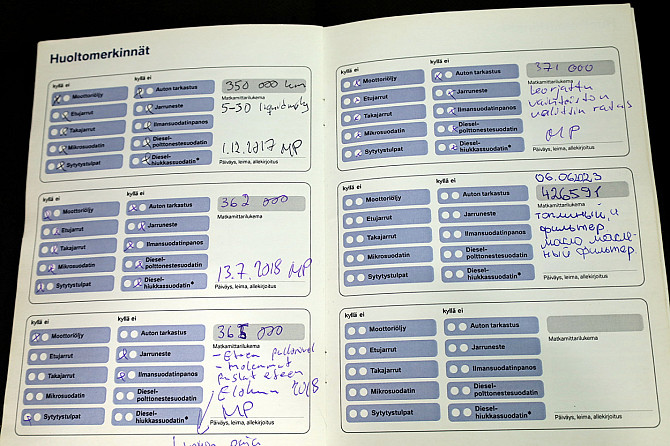 Huoltomerkinnät
kyllä ei
kyllä ei
Moottoriöljy
Auton tarkastus
350 000 km
Matkamittarilukema
Etujarrut
Jarruneste
5-30
Takajarrut
Ilmansuodatinpanos
Mikrosuodatin
Diesel-
polttonestesuodatin
Sytytystulpat
Diesel-
hiukkassuodatin*
1.12.2017 MP
Päiväys, leima, allekirjoitus
kyllä ei
kyllä ei
Moottoriöljy
Auton tarkastus
362 000
Matkamittarilukema
Etujarrut
Jarruneste
Takajarrut
Ilmansuodatinpanos
Mikrosuodatin
Diesel-
polttonestesuodatin
Sytytystulpat
Diesel-
hiukkassuodatin*
13.7.2018 MP
Päiväys, leima, allekirjoitus
kyllä ei
kyllä ei
Moottoriöljy
Auton tarkastus
365 000
Matkamittarilukema
Etujarrut
Jarruneste
- Eteen
- Molemmat
Takajarrut
Ilmansuodatinpanos
eteen
Mikrosuodatin
Diesel-
polttonestesuodatin
Elokuu 2018
Sytytystulpat
Diesel-
hiukkassuodatin*
MP
Päiväys, leima, allekirjoitus
kyllä ei
kyllä ei
Moottoriöljy
Auton tarkastus
371 000
Matkamittarilukema
Etujarrut
Jarruneste
korjattu
vaihteiston
Takajarrut
Ilmansuodatinpanos
valitsin
Mikrosuodatin
Diesel-
polttonestesuodatin
MP
Sytytystulpat
Diesel-
hiukkassuodatin*
Päiväys, leima, allekirjoitus
kyllä ei
kyllä ei
06.062023
Moottoriöljy
Auton tarkastus
426591
Matkamittarilukema
Etujarrut
Jarruneste
топливный
Takajarrut
Ilmansuodatinpanos
фильтер
масло, масле-
Mikrosuodatin
Diesel-
polttonestesuodatin
ный фильтер
Sytytystulpat
Diesel-
hiukkassuodatin*
Päiväys, leima, allekirjoitus
kyllä ei
kyllä ei
Moottoriöljy
Auton tarkastus
Matkamittarilukema
Etujarrut
Jarruneste
Takajarrut
Ilmansuodatinpanos
Mikrosuodatin
Diesel-
polttonestesuodatin
Sytytystulpat
Diesel-
hiukkassuodatin*
Päiväys, leima, allekirjoitus